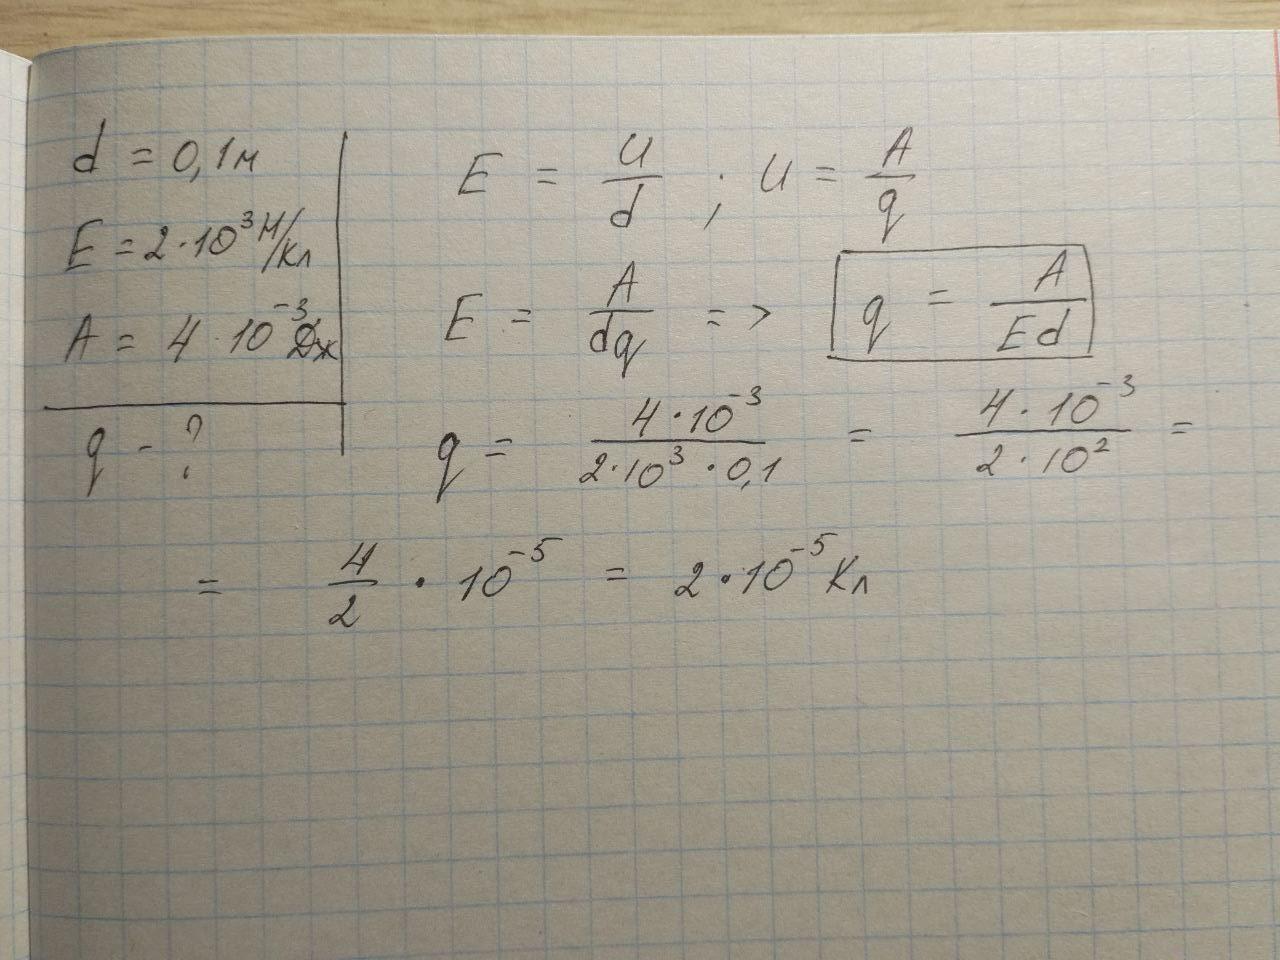 d = 0,1м
E = 2·10³ Н/Кл
A = 4·10⁻³ Дж
q - ?
E = U/d ; U = A/q
E = A/dq => q = A/Ed
q = 4·10⁻³/2·10³·0,1 = 4·10⁻³/2·10² =
= 4/2 · 10⁻⁵ = 2·10⁻⁵ Кл